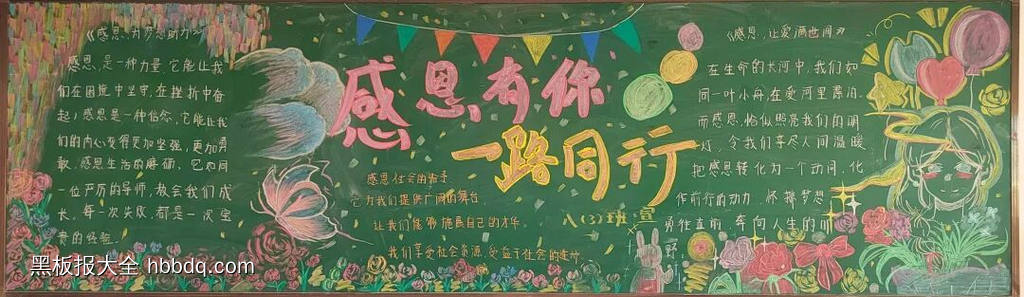 《感恩，为梦想助力》
感恩，是一种力量，它能让我
们在困境中坚守，在挫折中奋
起；感恩是一种信念，它能让我
们的内心变得更加坚强，更加勇
敢。感恩生活的磨砺，它如同
一位严厉的导师，教会我们成
长。每一次失败，都是一次宝
贵的经验。
感恩有你
一路同行
八(3)班 宣
感恩社会的
它为我们提供广阔的舞台，
让我们能够施展自己的才华。
我们享受社会资源，受益于社会的进步
《感恩，让爱洒满
在生命的长河中，我们如
同一叶小舟，在爱河里漂泊。
而感恩，恰似照亮我们的明
灯，令我们享尽人间温暖
把感恩转化为一个动词，化
作前行的动力，怀揣梦想
勇往直前，奔向人生的
野
黑板报大全 hbbdq.com